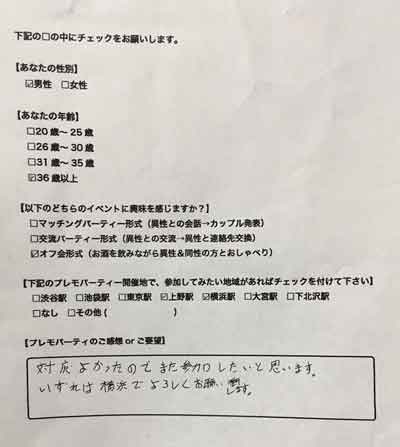 下記の□の中にチェックをお願いします。
【あなたの性別】
☑男性 □女性
【あなたの年齢】
□20歳〜25歳
□26歳〜30歳
□31歳〜35歳
☑36歳以上
【以下のどちらのイベントに興味を感じますか？】
□マッチングパーティー形式（異性との会話→カップル発表）
□交流パーティー形式（異性との交流→異性と連絡先交換）
☑オフ会形式（お酒を飲みながら異性＆同性の方とおしゃべり）
【下記のプレモパーティー開催地で、参加してみたい地域があればチェックを付けて下さい】
□渋谷駅 □池袋駅 □東京駅 ☑上野駅 ☑横浜駅 □大宮駅 □下北沢駅
□なし □その他（ ）
【プレモパーティのご感想 or ご要望】
対応よかったのでまた参加したいと思います。
いずれは横浜でよろしくお願いします。